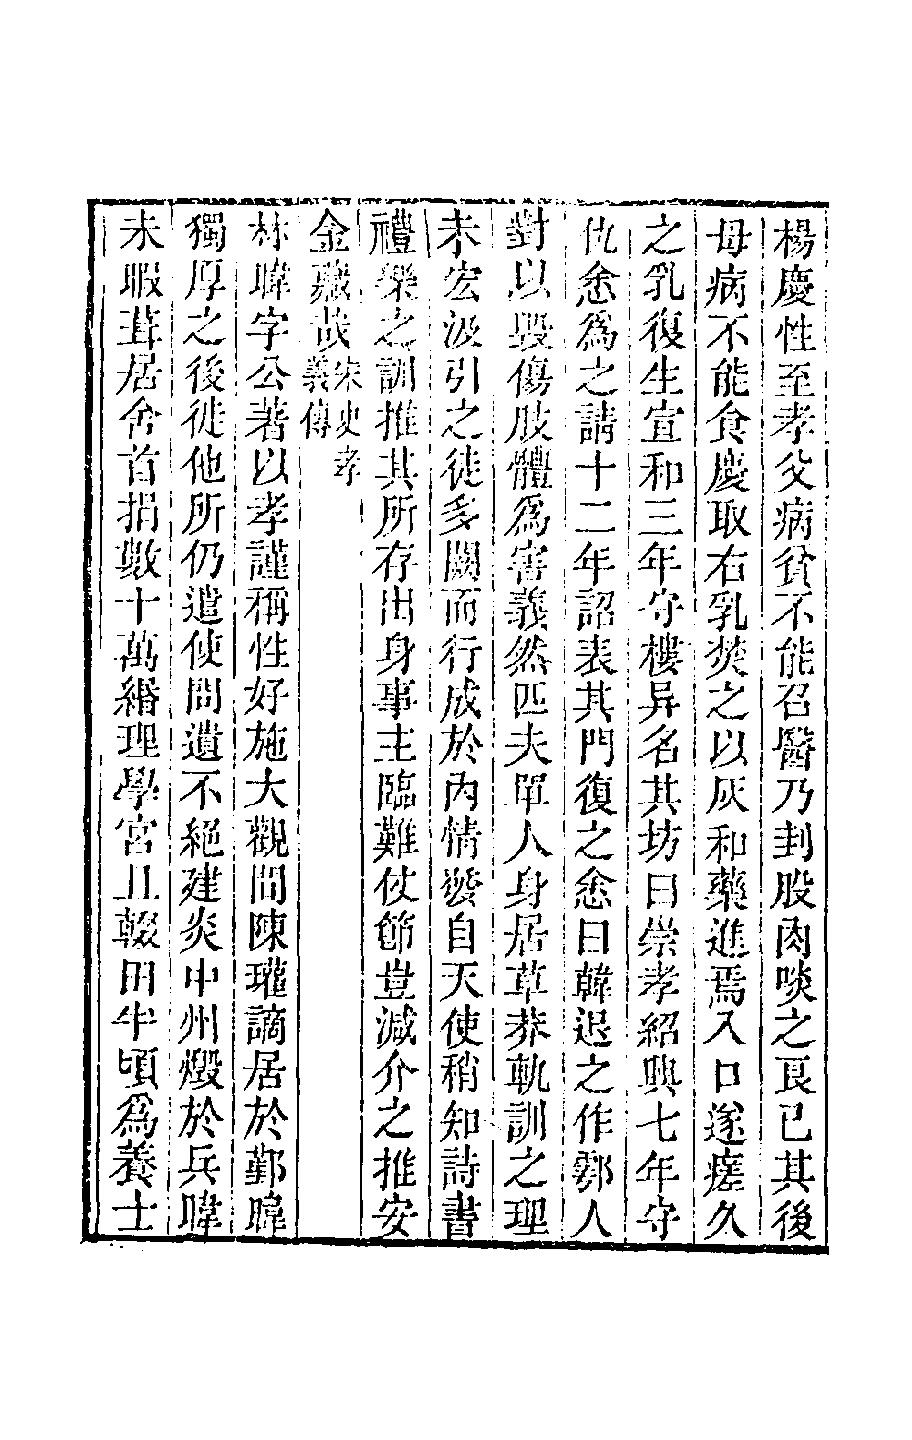 楊慶性至孝父病貧不能召醫乃刲股肉啖之良已其後
母病不能食慶取右乳焚之以灰和藥進焉入口遂瘥久
之乳復生宣和三年守樓异名其坊曰崇孝紹興七年守
仇悆為之請十二年詔表其門復之悆曰韓退之作鄠人
對以毀傷肢體為害義然匹夫單人身居草莽軌訓之理
未宏汲引之徒多闕而行成於內情發自天使稍知詩書
禮樂之訓推其所存出身事主臨難仗節豈減介之推安
金藏哉宋史孝義傳
林暐字公著以孝謹稱性好施大觀間陳瓘謫居於鄞暐
獨厚之後徙他所仍遣使問遺不絕建炎中州燬於兵暐
未暇葺居舍首捐數十萬緡理學宮且輟田半頃為養士